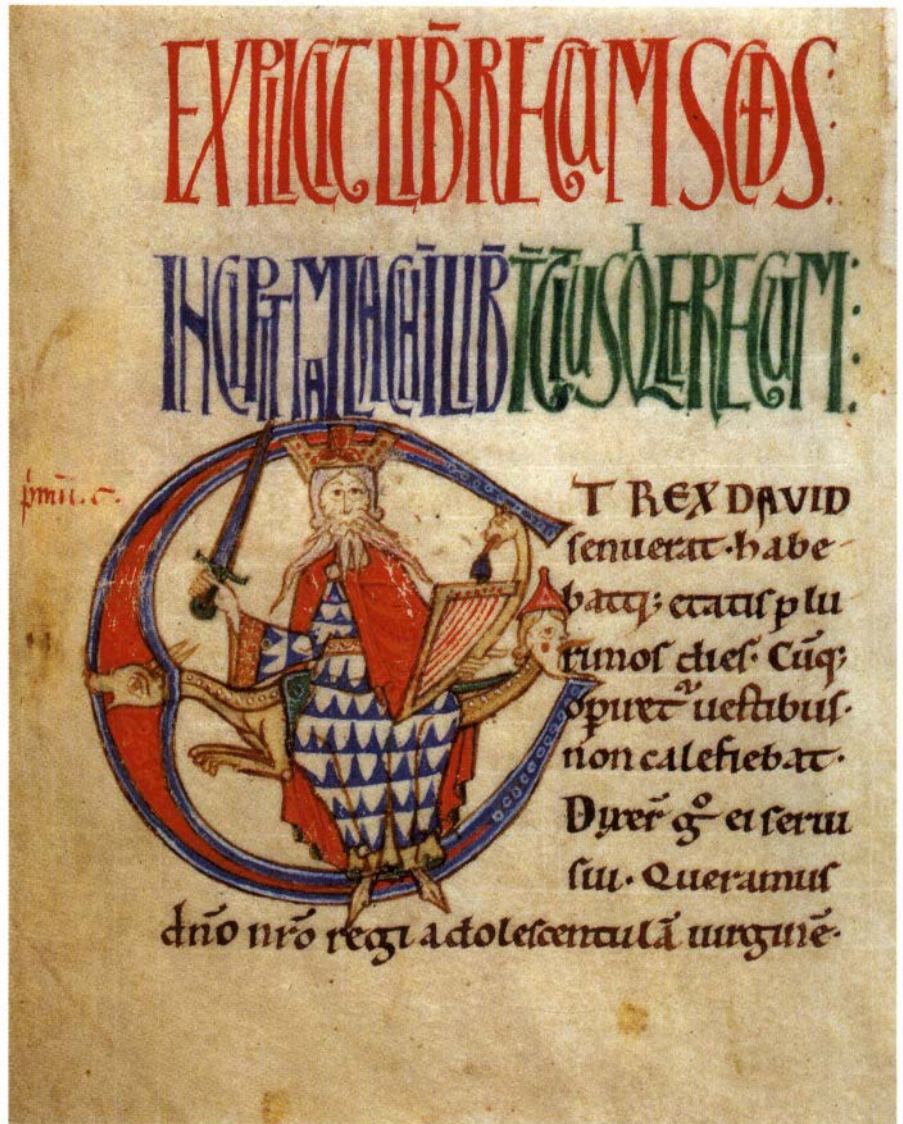 EXPLICIT LIB̄ REGUM SCD̄S:
INCIPIT MALACHĪ LIB̄ T̄CIUS REGUM:
p̄mū. c.
ET REX DAVID
senuerat · habe
batq; etatis plu
rimos dies · Cūq;
opiret͛ uestibus ·
non calefiebat ·
Dixer̄ gº ei serui
sui · Queramus
dn̄o nr̄o regi adolescentulā uirginē ·